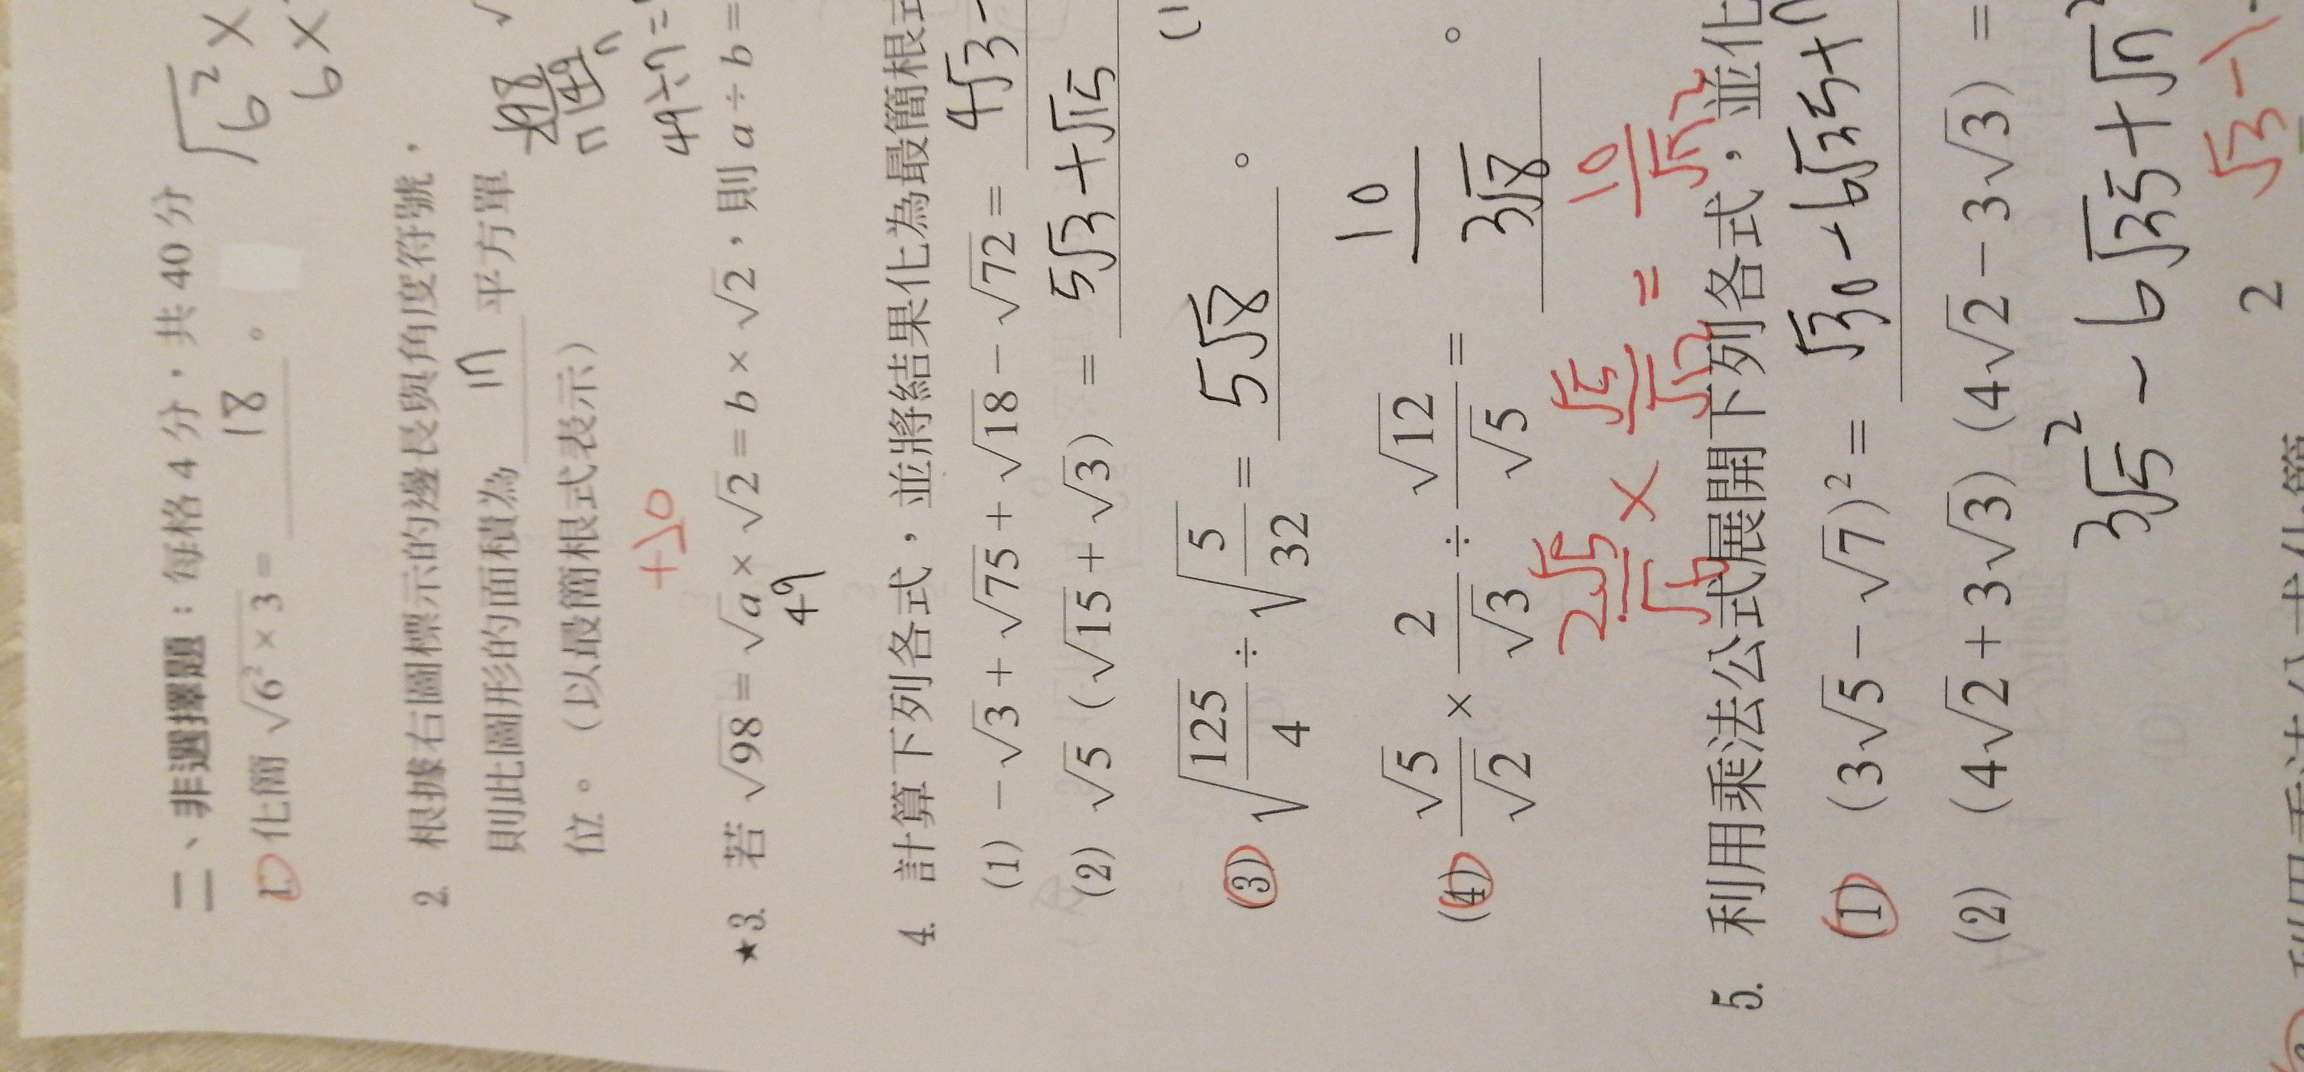 二、非選擇題：每格 4 分，共 40 分
1. 化簡 √(6² × 3) = 18 。
√6² ×
6 ×
2. 根據右圖標示的邊長與角度符號，
則此圖形的面積為 平方單
位。（以最簡根式表示）
★3. 若 √98 = √a × √2 = b × √2，則 a ÷ b =
49
49÷7=
4. 計算下列各式，並將結果化為最簡根式
(1) −√3 + √75 + √18 − √72 = 4√3 -
(2) √5 (√15 + √3) = 5√3 + √15
(3) √(125/4) ÷ √(5/32) = 5√8 。
(4) √5/√2 × 2/√3 ÷ √12/√5 = 10/3√8 。
2√5/√6 × √5/√12 = 10/√72
5. 利用乘法公式展開下列各式，並化
(1) (3√5 − √7)² = √30 - 6√35 +
(2) (4√2 + 3√3) (4√2 − 3√3) =
3√5² - 6√35 + √7²
√3 -
2